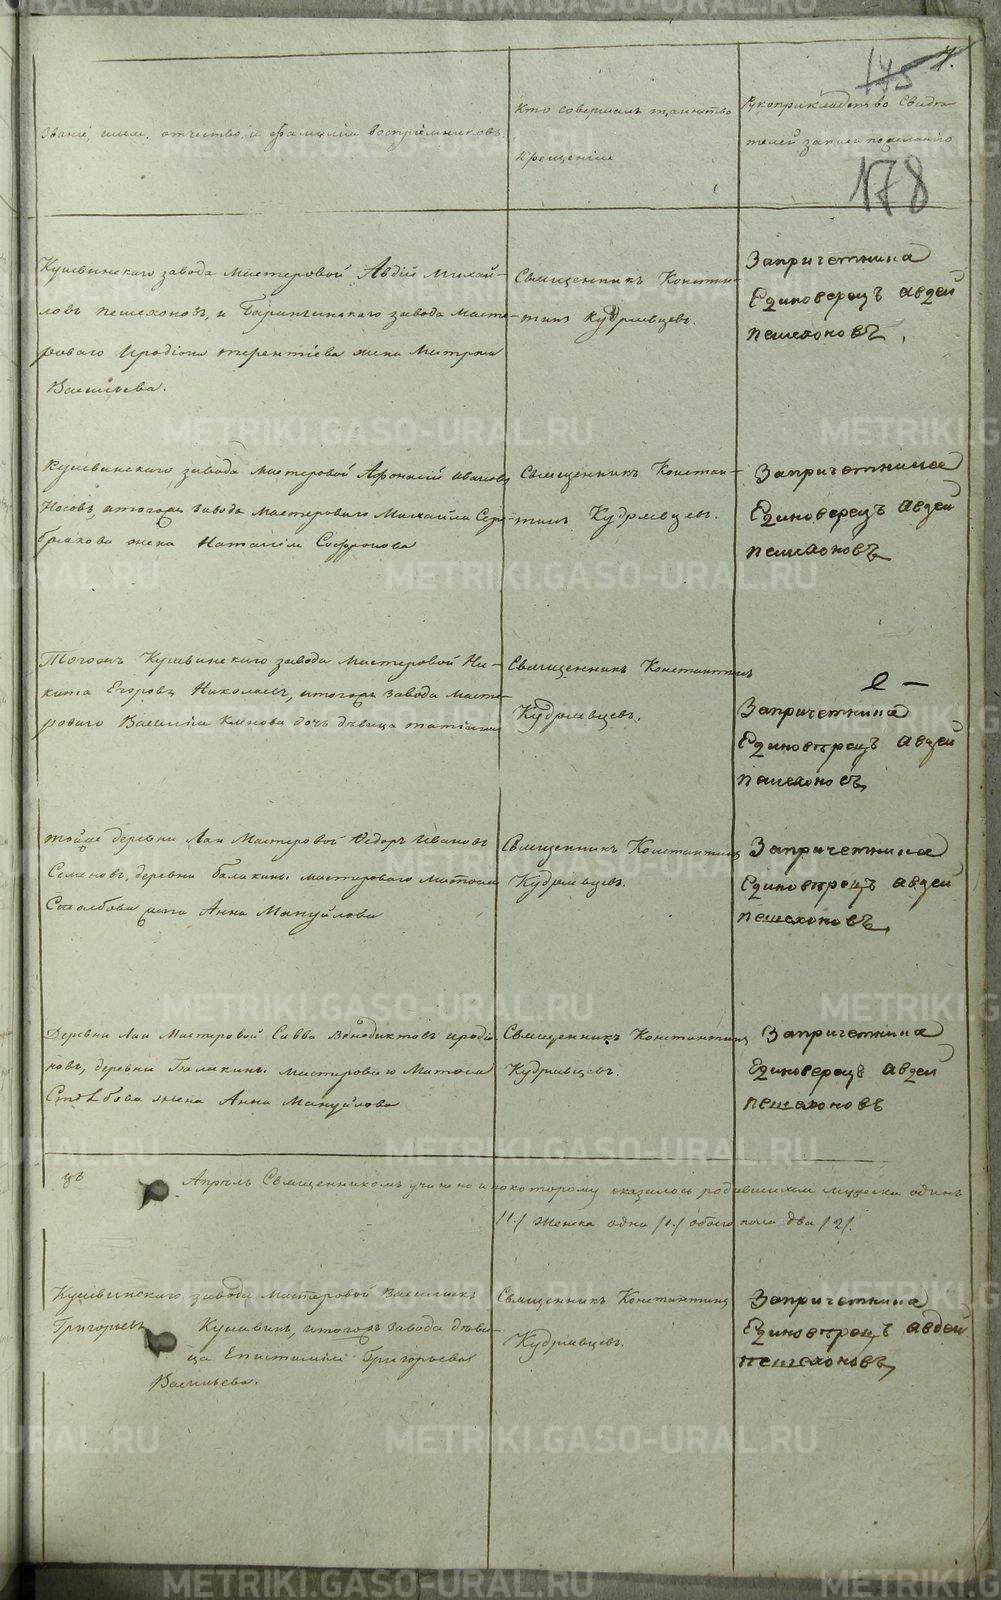 175
7.
178
Званіе, имя, отчество, и фамилія воспріемниковъ.
Кто совершалъ таинство
крещенія
Рукоприкладство Свидѣ
телей записи по желанію
Кушвинскаго завода мастеровой Авдій Михай-
ловъ Пешехоновъ, и Баранчинскаго завода масте-
роваго Иродіона Терентіева жена Матрона
Васильева.
Священникъ Констан-
тинъ Кудрявцевъ.
Запричетника
Единоверецъ Авдей
пешехоновъ.
Кушвинскаго завода мастеровой Афонасій Ивановъ
Носовъ, итогожъ завода мастероваго Михайла Сере-
брякова жена Наталія Софронова
Священникъ Констан-
тинъ Кудрявцевъ.
Запричетника
Единоверецъ Авдей
пешехоновъ
Тогожъ Кушвинскаго завода мастеровой Ни-
кита Егоровъ Николаевъ, итогожъ завода масте-
роваго Василія дочь дѣвица Татіяна
Священникъ Константинъ
Кудрявцевъ.
Запричетника
Единоверецъ Авдей
пешехоновъ
тойже деревни Лаи Мастеровой Ѳедоръ Ивановъ
Семеновъ, деревни Балакины мастероваго Матвея
Столбова жена Анна Мануйлова
Священникъ Константинъ
Кудрявцевъ.
Запричетника
Единоверецъ Авдей
пешехоновъ
Деревни Лаи Мастеровой Савва Венедиктовъ Иродіо
новъ, деревни Балакины мастероваго Матвея
Столбова жена Анна Мануйлова
Священникъ Константинъ
Кудрявцевъ.
Запричетника
Единоверецъ Авдей
пешехоновъ
цъ Апрѣль Священникомъ учинено а по которому оказалось родившихся мужеска одинъ
/1./ женска одна /1./ обоего пола два /2/.
Кушвинскаго завода Мастеровой Василискъ
Григорьевъ Кунавинъ, итогожъ завода дѣви-
ца Епистимія Григорьева
Васильева.
Священникъ Константинъ
Кудрявцевъ.
Запричетника
Единоверецъ Авдей
пешехоновъ
METRIKI.GASO-URAL.RU